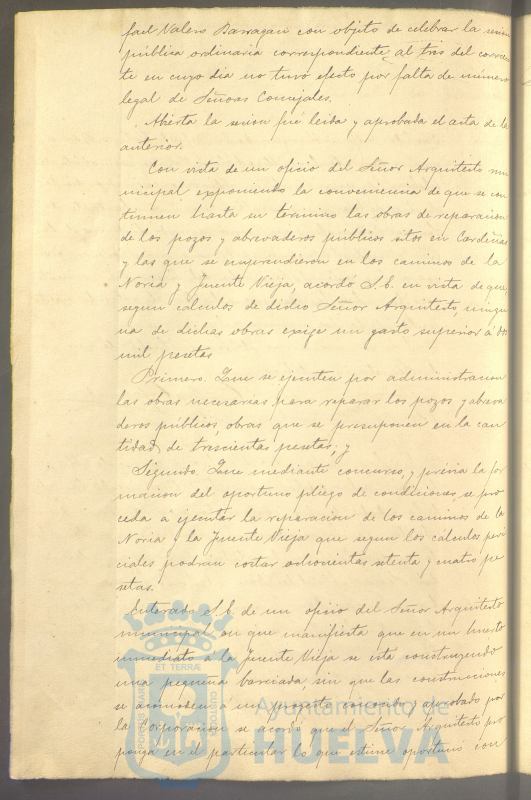 fael Valero Barragan con objeto de celebrar la sesion
pública ordinaria correspondiente al tres del corrien
te en cuyo dia no tuvo efecto por falta de número
legal de Señores Concejales.
Abierta la sesion fué leida y aprobada el acta de la
anterior.
Con vista de un oficio del Señor Arquitecto mu
nicipal exponiendo la conveniencia de que se con
tinuen hasta su término las obras de reparacion
de los pozos y abrevaderos públicos sitos en Cardeñas
y las que se emprendieron en los caminos de la
Noria y Fuente Vieja, acordó S.E. en vista de que,
segun cálculos de dicho Señor Arquitecto, ningu
na de dichas obras exige un gasto superior á dos
mil pesetas
Primero. Que se ejecuten por administracion
las obras necesarias para reparar los pozos y abreva
deros públicos, obras que se presuponen en la can
tidad de trescientas pesetas; y
Segundo. Que mediante concurso, y prévia la for
macion del oportuno pliego de condiciones, se pro
ceda á ejecutar la reparacion de los caminos de la
Noria y la Fuente Vieja que segun los cálculos peri
ciales podran costar ochocientas setenta y cuatro pe
setas.
Enterado S.E. de un oficio del Señor Arquitecto
municipal en que manifiesta que en un huerto
inmediato á la Fuente Vieja se está construyendo
una pequeña barriada, sin que las construcciones
se acomoden á un proyecto conocido y aprobado por
la Corporacion se acordó que el Señor Arquitecto pro
ponga en el particular lo que estime oportuno con
ET TERRÆ
PORTUS MARIS
CUSTODIA
Ayuntamiento de
HUELVA